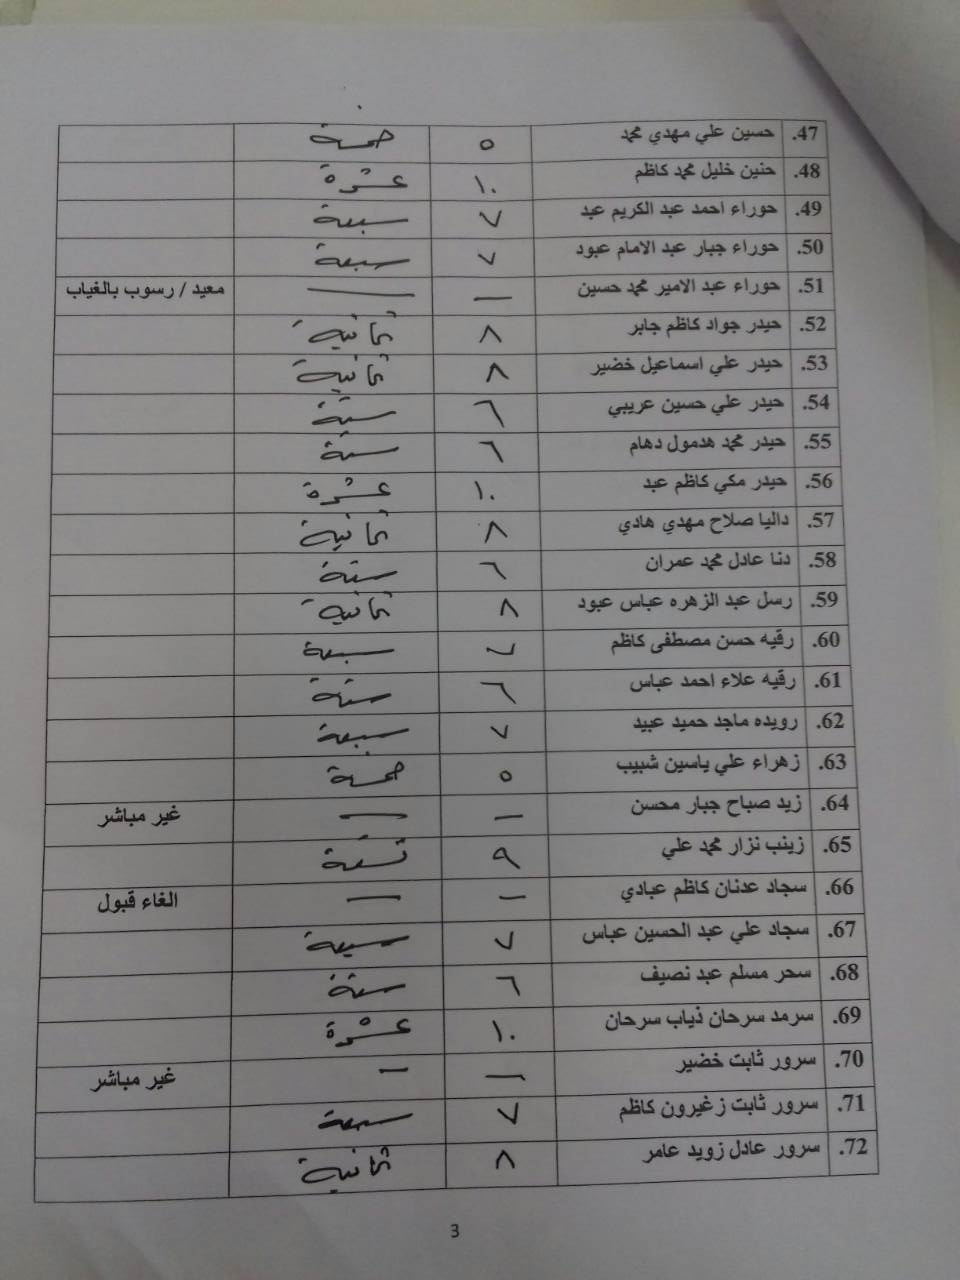 47. حسين علي مهدي محمد ٥ خمسة
48. حنين خليل محمد كاظم ١٠ عشرة
49. حوراء احمد عبد الكريم عبد ٧ سبعة
50. حوراء جبار عبد الامام عبود ٧ سبعة
51. حوراء عبد الامير محمد حسين — — معيد / رسوب بالغياب
52. حيدر جواد كاظم جابر ٨ ثمانية
53. حيدر علي اسماعيل خضير ٨ ثمانية
54. حيدر علي حسين عريبي ٦ ستة
55. حيدر محمد هدمول دهام ٦ ستة
56. حيدر مكي كاظم عبد ١٠ عشرة
57. داليا صلاح مهدي هادي ٨ ثمانية
58. دنا عادل محمد عمران ٦ ستة
59. رسل عبد الزهره عباس عبود ٨ ثمانية
60. رقيه حسن مصطفى كاظم ٧ سبعة
61. رقيه علاء احمد عباس ٦ ستة
62. رويده ماجد حميد عبيد ٧ سبعة
63. زهراء علي ياسين شبيب ٥ خمسة
64. زيد صباح جبار محسن — — غير مباشر
65. زينب نزار محمد علي ٩ تسعة
66. سجاد عدنان كاظم عبادي — — الغاء قبول
67. سجاد علي عبد الحسين عباس ٧ سبعة
68. سحر مسلم عبد نصيف ٦ ستة
69. سرمد سرحان ذياب سرحان ١٠ عشرة
70. سرور ثابت خضير — — غير مباشر
71. سرور ثابت زغيرون كاظم ٧ سبعة
72. سرور عادل زويد عامر ٨ ثمانية
3